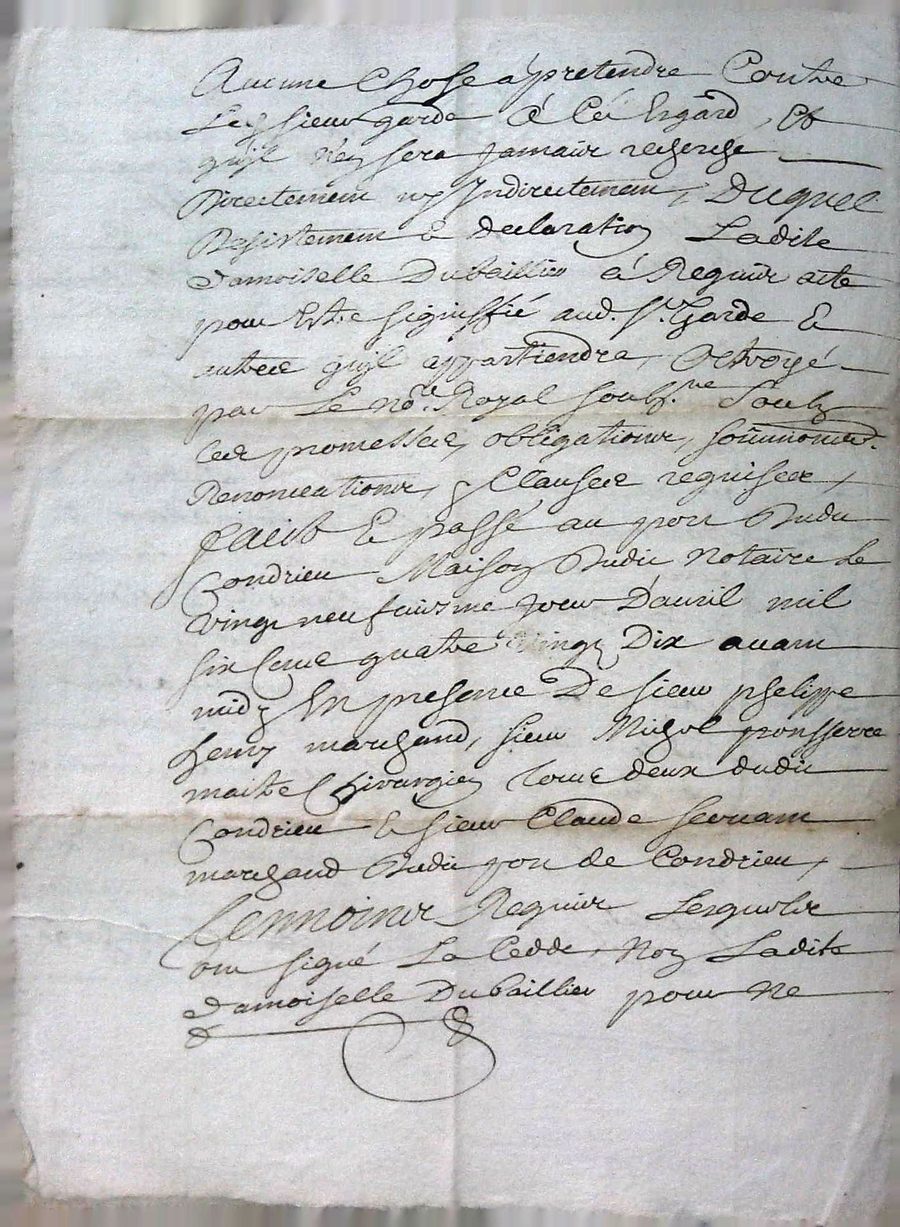 Aucune chose a pretendre Contre
Le sieur garde a Cet Esgard, Et
quil n'en sera jamais recherché
Directement ny Indirectement, Duquel
Desistement & declaration Ladite
Damoiselle Duvaillier a Requiir acte
pour Estre signiffié aud. Sr. Garde &
autres quil appartiendra, Octroyé
par Le nore. Royal soubz.né Soubz
les promesses, obligations, soûmions.
Renonciations, & Clauses requises,
Faict & passé au port Dudit
Condrieu Maison Dudit Notaire Le
vingt neufuiesme jour D'auril mil
six Cent quatre vingt Dix auant
midy En presence De sieur phelippe
marchand, sieur Michel
maitre Chirurgien tous deux dudit
Condrieu & sieur Claude seruant
marchand Dudit port de Condrieu,
temnoins Requiir Lesquels
ont signé La Cedde, Non Ladite
Damoiselle Duvaillier pour ne